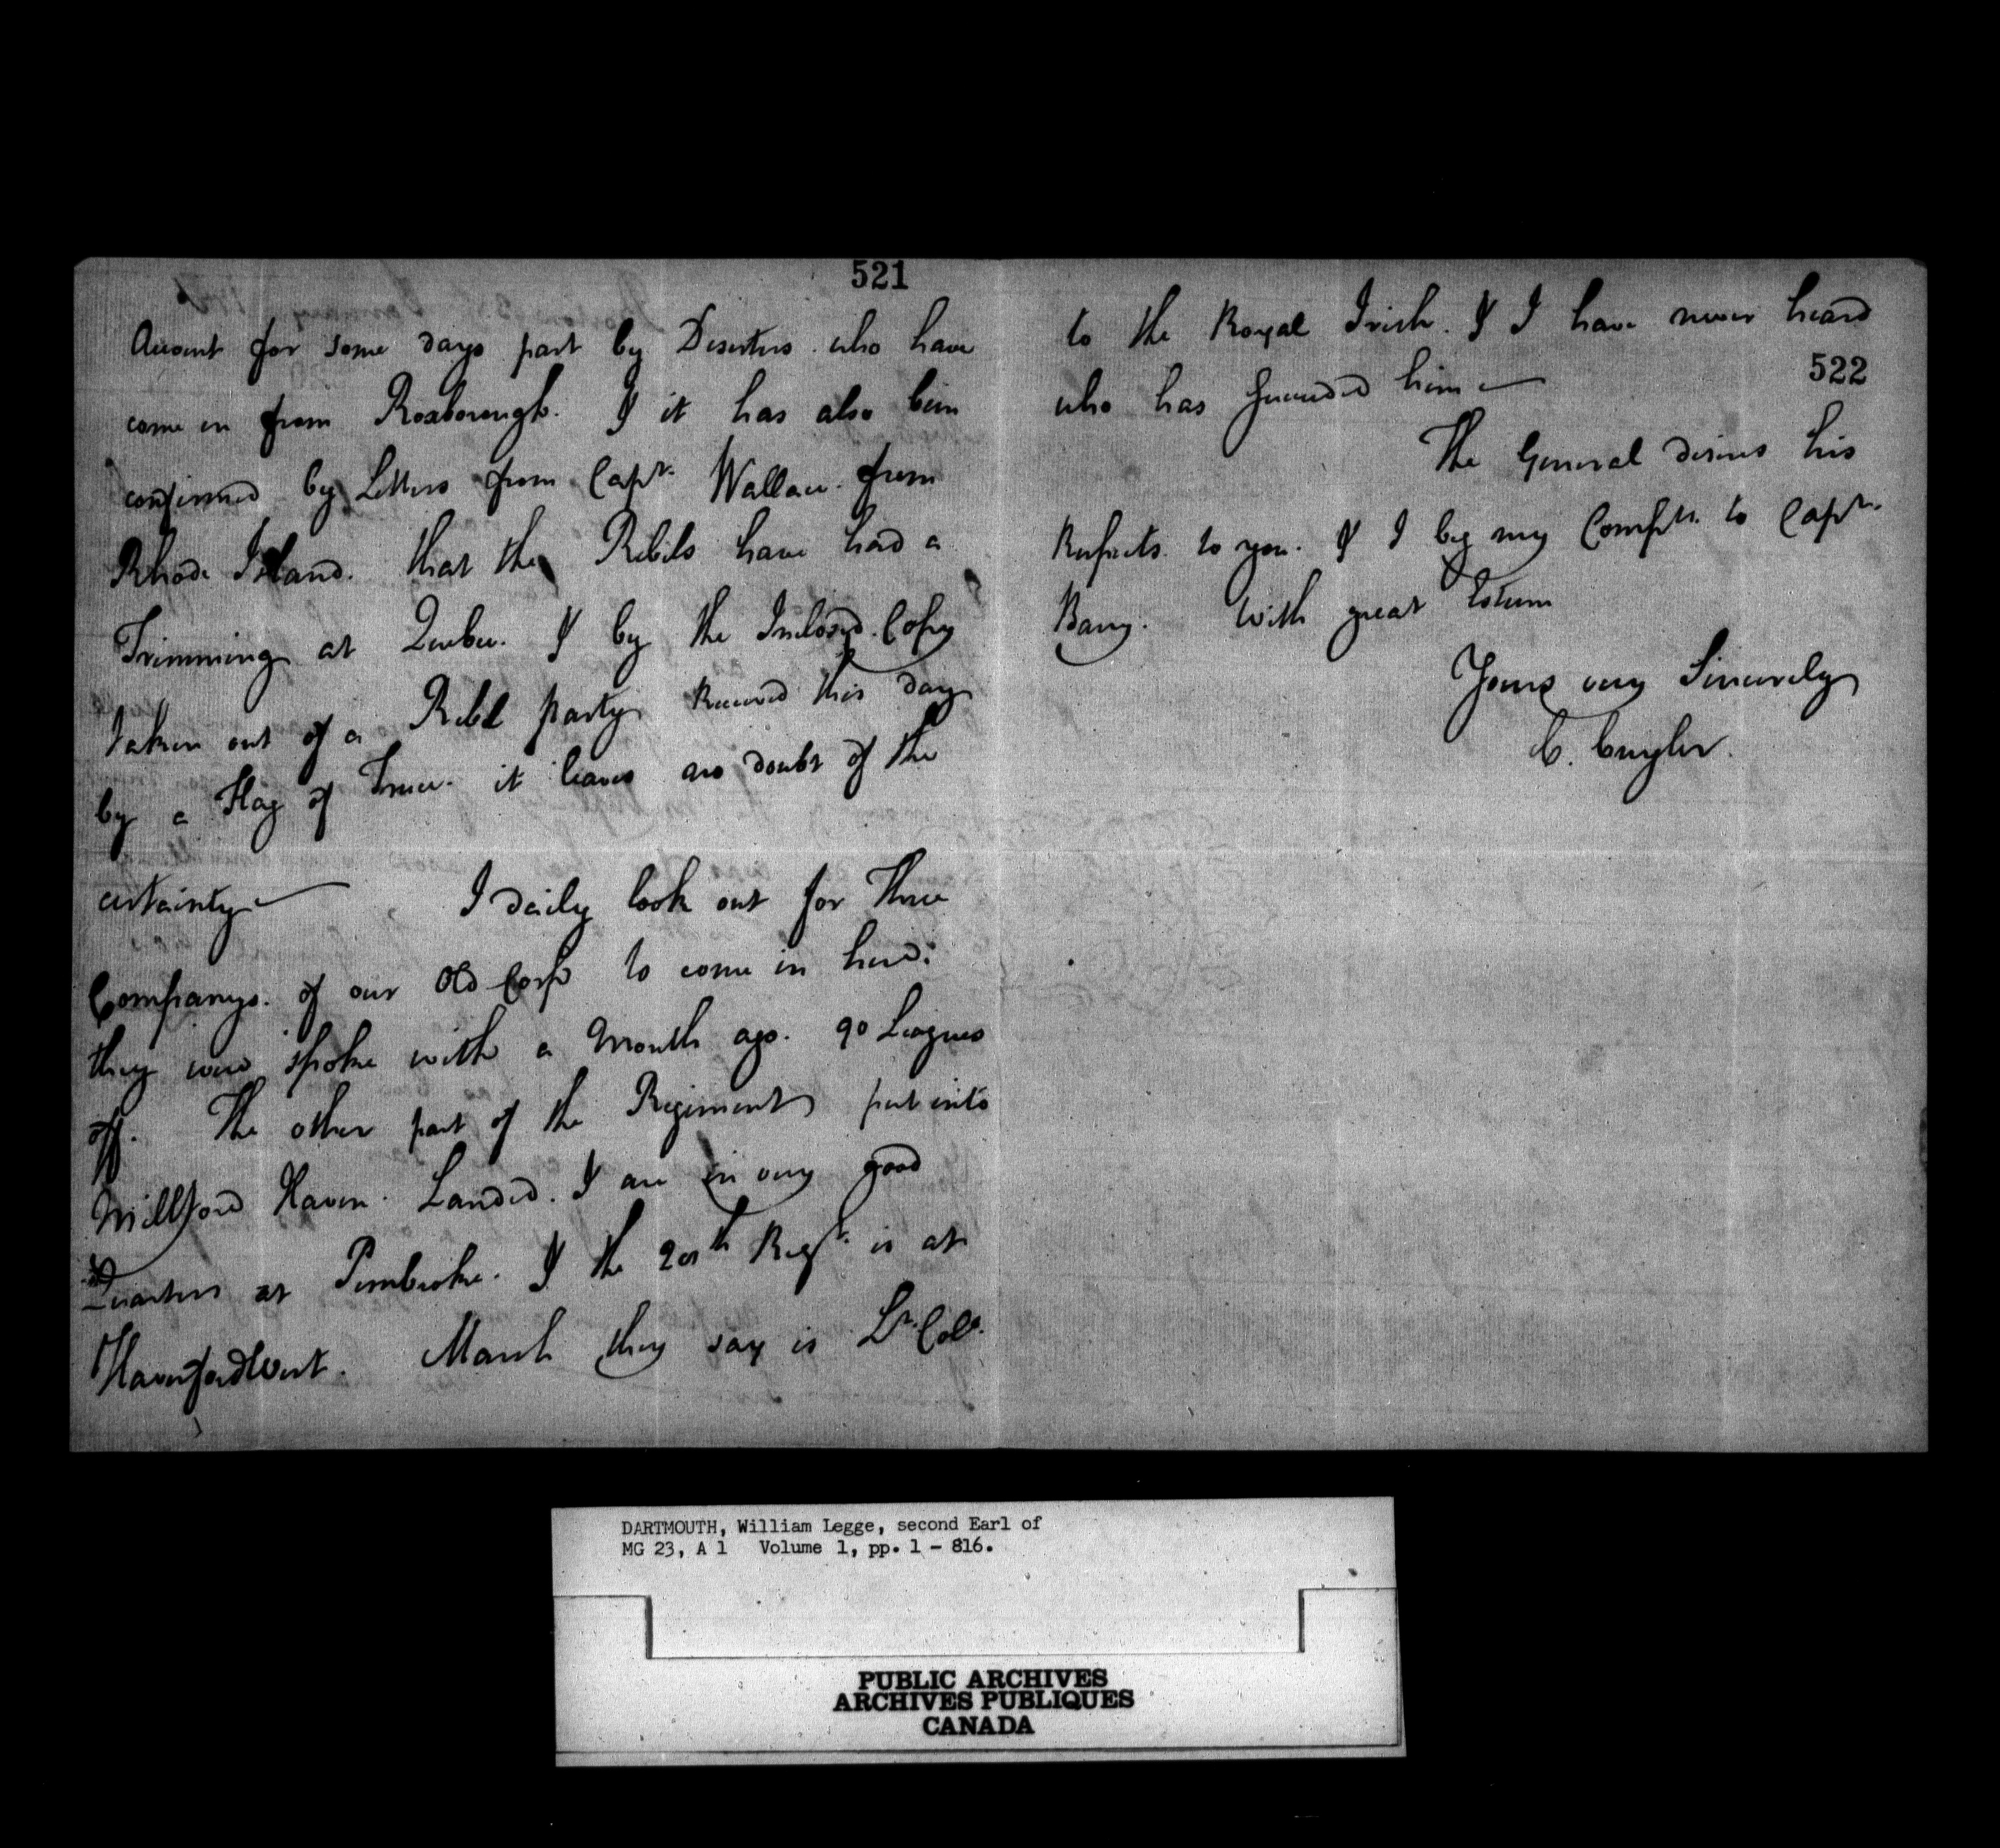 521
Account for some days past by Deserters who have
come in from Roxborough. & it has also been
confirmed by Letters from Capt. Wallace from
Rhode Island. that the Rebels have had a
Trimming at Quebec. & by the Inclosed Copy
taken out of a Rebel party Received this day
by a Flag of Truce. it leaves no doubt of the
certainty — I daily look out for Three
Companys. of our Old Corps to come in here.
they were spoke with a Month ago. 90 Leagues
off. The other part of the Regiment put into
Millford Haven. Landed. & are in very good
Quarters at Pembroke. & the 20th Regt. is at
Haverfordwest. Marsh they say is Lt. Coll.
to the Royal Irish. & I have never heard
522
who has succeeded him —
The General desires his
Respects to you. & I beg my Compts. to Capt.
Barry. With great Esteem
Yours very Sincerely
C. Cuyler.
DARTMOUTH, William Legge, second Earl of
MG 23, A 1 Volume 1, pp. 1 - 816.
PUBLIC ARCHIVES
ARCHIVES PUBLIQUES
CANADA